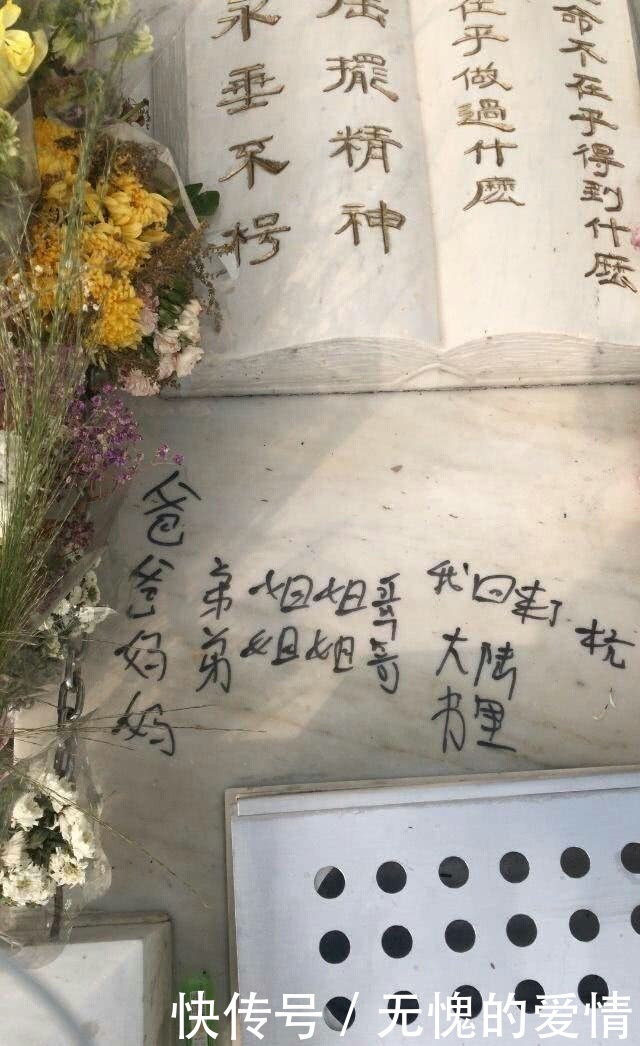 命不在乎得到什麼
在乎做過什麼
擺精神
永垂不朽
爸爸妈妈
弟弟
姐姐
姐姐
哥哥
我回来了
大陆
杭
快传号/无愧的爱情